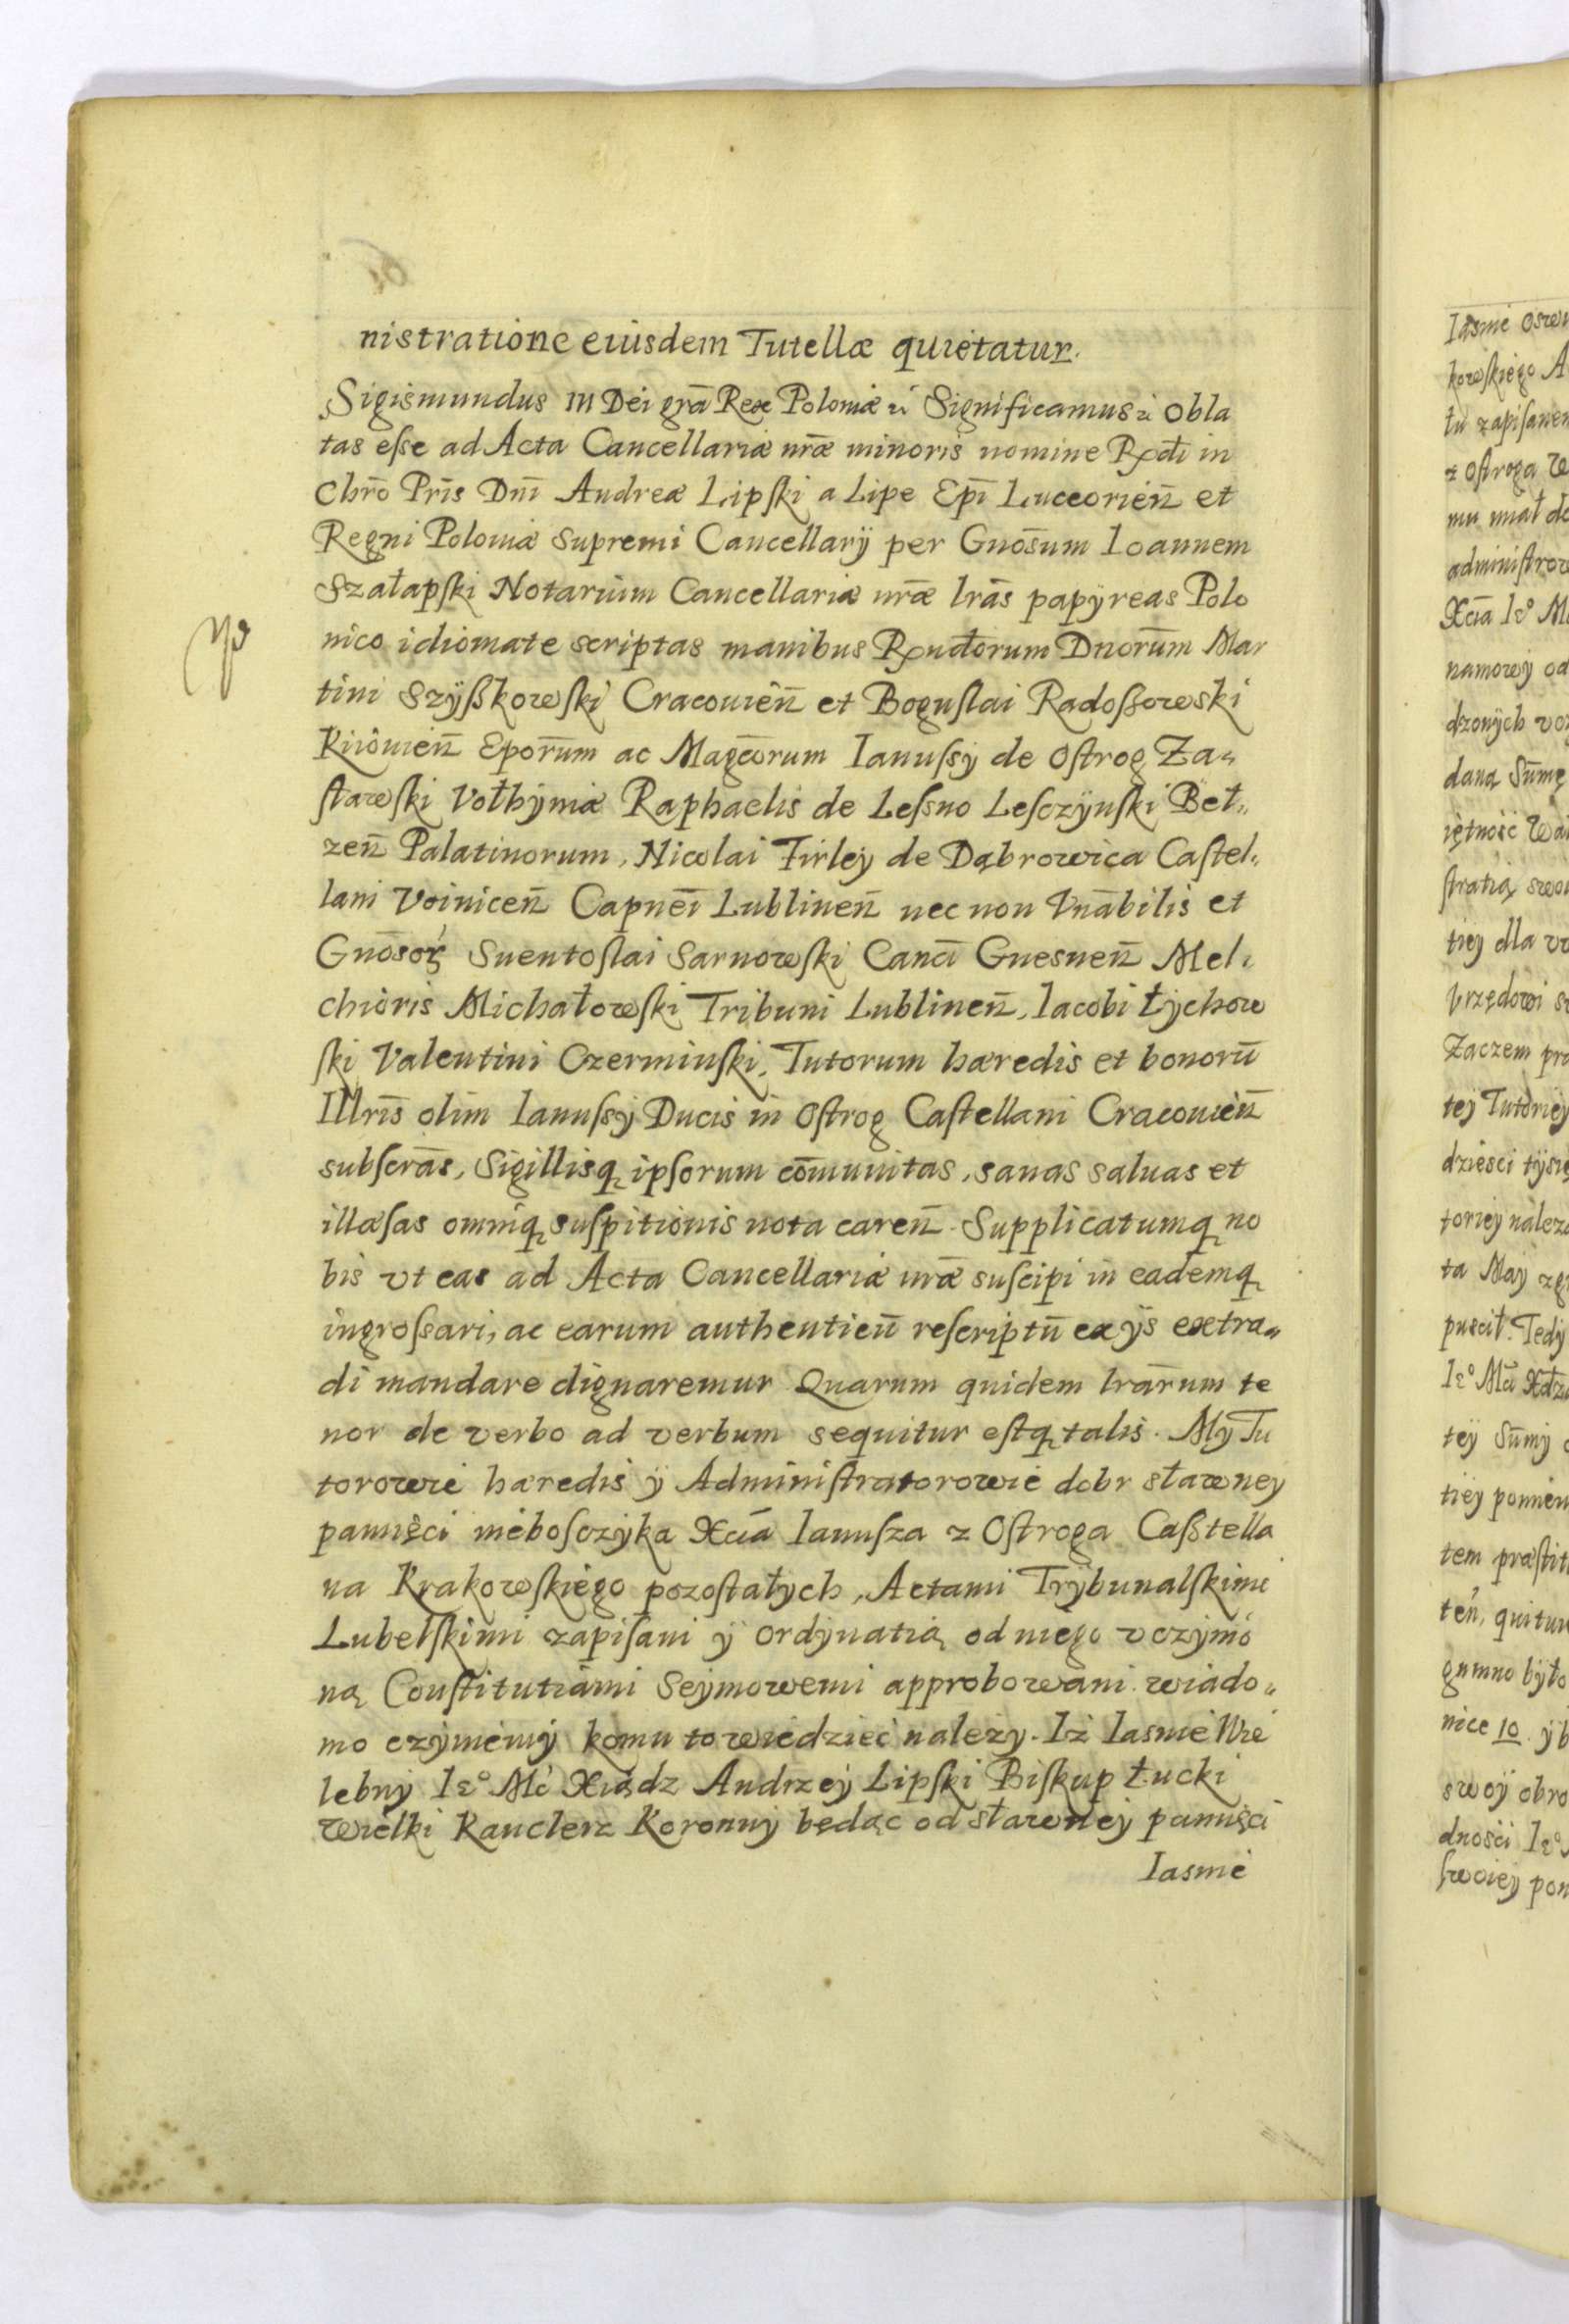 nistratione eiusdem Tutellæ quietatur.
Sigismundus III Dei grã Rex Poloniæ Significamus obla
tas eſse ad Acta Cancellariæ nr̃æ minoris nomine Rx̃di in
Chrõ Pr̃is Dnĩ Andreæ Lipſki a Lipe Epĩ Luceorień et
Regni Poloniæ Supremi Cancellarÿ per Gnõsum Ioannem
Szałapſki Notarium Cancellariæ nr̃æ lrãs papÿreas Polo
nico idiomate scriptas manibus Rxndorum Dnorũm Mar
tini Szÿßkowſki Cracouień et Boguſlai Radoßowski
Kiiouień Eporũm ac Magcorum Ianuſsÿ de Oſtrog Za„
ſławſki Vołhÿniæ Raphaelis de Leſsno Leſczÿnſki Beł„
zeñ Palatinorum, Nicolai Firleÿ de Dąbrowica Caſtel„
lani Voiniceñ Capneĩ Lublineñ nec non Vnãbilis et
Gnõsoꝝ Suentoſlai Sarnowſki Canci Gnesneñ Mel„
chioris Michałowſki Tribuni Lublineñ, Iacobi Łÿchow
ſki Valentini Czerminſki, Tutorum hæredis et bonorũ
Illrĩs olim Ianuſsÿ Ducis in Oſtrog Caſtellani Cracouień
subſcrãs, Sigillisq ipſorum cõmunitas, sanas saluas et
illæſas omniq suſpitionis nota careñ. Supplicatumq no
bis vt eas ad Acta Cancellariæ nr̃æ suſcipi in eademq
ingroſsari, ac earum authenticũ reſcriptũ ex ÿs extra„
di mandare dignaremur Quarum quidem lrãrum te
nor de verbo ad verbum sequitur eſtq talis. Mÿ Tu
torowie hæredis ÿ Adminiſtratorowie dobr sławneÿ
pamięci nieboſczÿka Xcĩa Ianuſza z Oſtroga Caßtella
na Krakowſkiego pozoſtałÿch, Actami Trÿbunalſkimi
Lubelſkimi zapiſani ÿ ordÿnatią od niego vczÿnio
ną Conſtitutiami Seÿmowemi approbowani. wiado„
mo czÿniemÿ komu to wiedzieć należÿ. Iż Iasnie Wie
lebnÿ Ie° Mć Xiądz Andrzeÿ Lipſki Biſkup Łucki
Wielki Kanclerz Koronnÿ będąc od sławneÿ pamięci
Iasnie